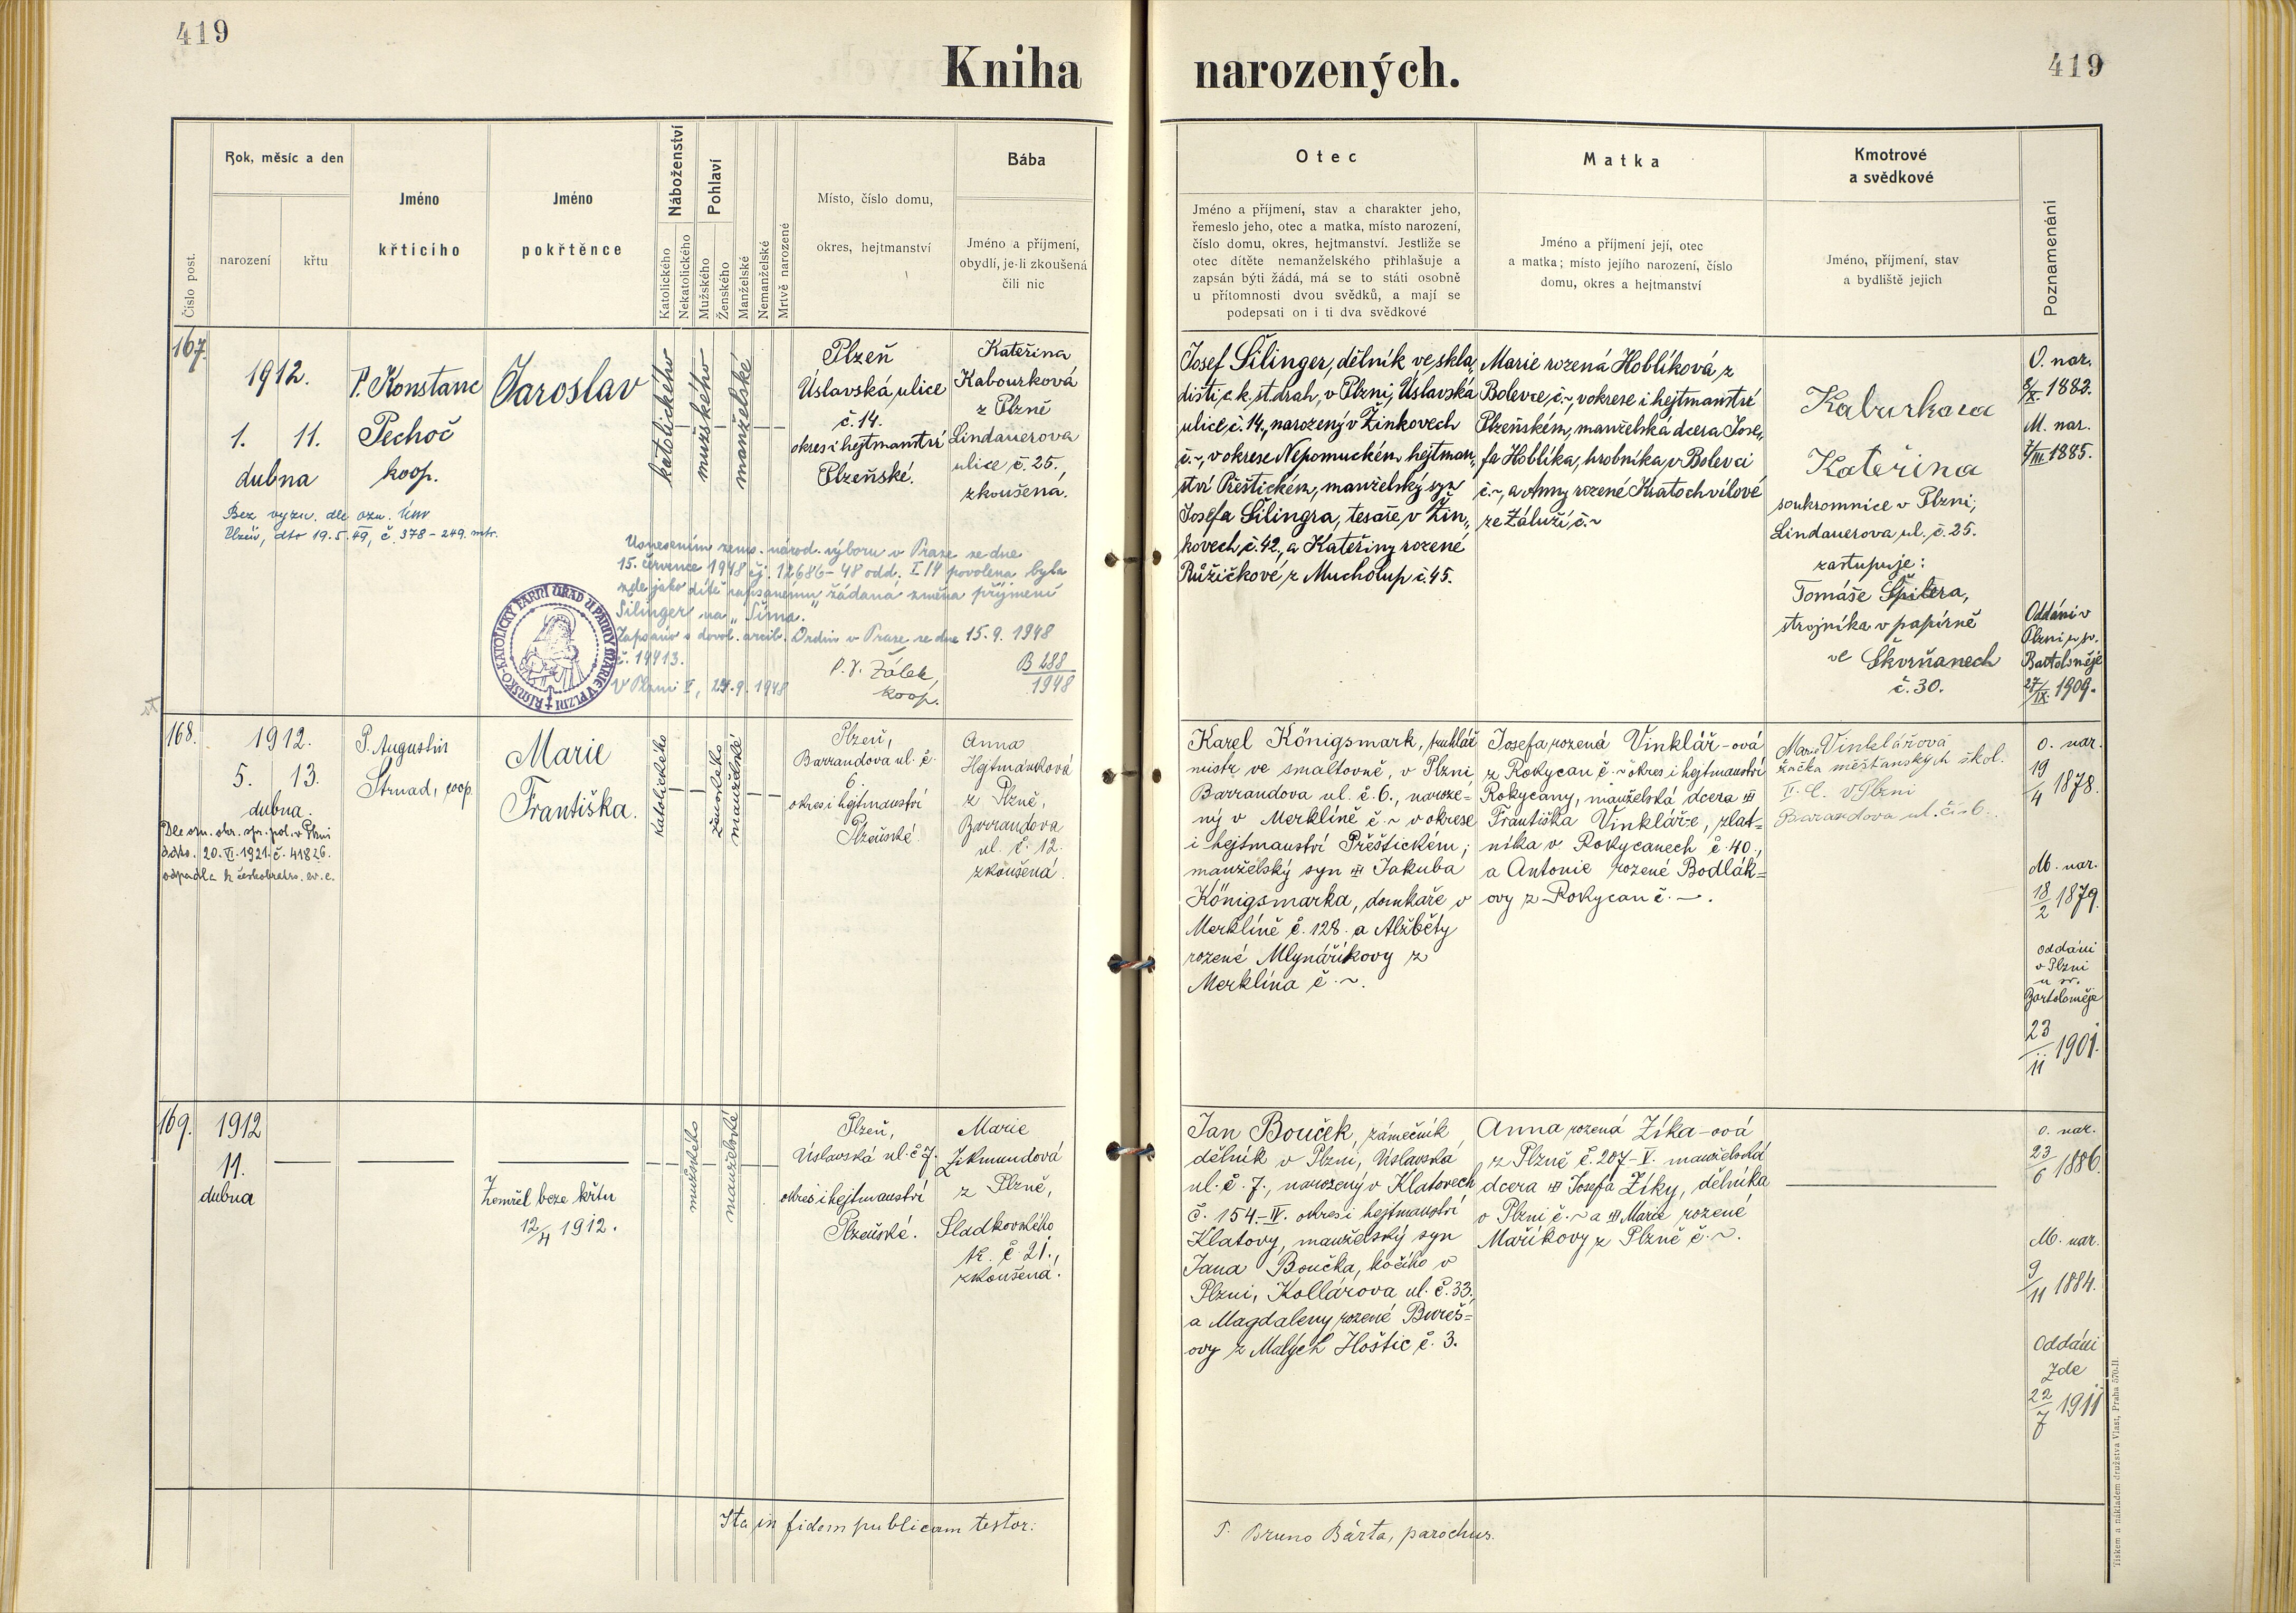 419
Kniha narozených.
419
Číslo post.
Rok, měsíc a den
narození
křtu
Jméno
křticího
Jméno
pokřtěnce
Náboženství
Katolického
Nekatolického
Pohlaví
Mužského
Ženského
Manželské
Nemanželské
Mrtvě narozené
Místo, číslo domu,
okres, hejtmanství
Bába
Jméno a příjmení,
obydlí, je-li zkoušená
čili nic
Otec
Jméno a příjmení, stav a charakter jeho,
řemeslo jeho, otec a matka, místo narození,
číslo domu, okres, hejtmanství. Jestliže se
otec dítěte nemanželského přihlašuje a
zapsán býti žádá, má se to státi osobně
u přítomnosti dvou svědků, a mají se
podepsati on i ti dva svědkové
Matka
Jméno a příjmení její, otec
a matka; místo jejího narození, číslo
domu, okres a hejtmanství
Kmotrové
a svědkové
Jméno, příjmení, stav
a bydliště jejich
Poznamenání
167.
1912.
1. 11.
dubna
Bez vyzn. dle ozn.
Plzeň, dto 19.5.49, č. 378-249. mtr.
P. Konstanc
Pechoč
koop.
Jaroslav
katolického
mužského
manželské
Plzeň
Úslavská ulice
č. 14.
okres i hejtmanství
Plzeňské.
Kateřina
Kabourková
z Plzně
Lindauerova
ulice č. 25.,
zkoušená.
Usnesením zems. národ. výboru v Praze ze dne
15. července 1948 čj. 12686-48 odd. I/4 povolena byla
zde jako dítě zapsanému žádaná změna příjmení
Šilinger na „Šíma."
Zapsáno s dovol. arcib. Ordin. v Praze ze dne 15.9.1948
č. 14413.
V Plzni V, 24.9.1948
P. J. Žálek,
koop.
B 288
1948
ŘÍMSKO-KATOLICKÝ FARNÍ ÚŘAD U PANNY MARIE V PLZNI
Josef Šilinger, dělník ve skla„
dišti c. k. st. drah, v Plzni, Úslavská
ulice č. 14., narozený v Žinkovech
č. ~, v okrese Nepomuckém, hejtman„
ství Přeštickém, manželský syn
Josefa Šilingra, tesaře, v Žin„
kovech, č. 42., a Kateřiny rozené
Růžičkové z Mucholup č. 45.
Marie rozená Hoblíková z
Bolevce, č. ~, v okrese i hejtmanství
Plzeňském, manželská dcera Jose„
fa Hoblíka, hrobníka, v Bolevci
č. ~, a Anny rozené Kratochvílové
ze Záluží, č. ~
Kaburkova
Kateřina
soukromnice v Plzni,
Lindauerova ul. č. 25.
zastupuje:
Tomáše Špitera,
strojníka v papírně
ve Skvrňanech
č. 30.
O. nar.
8/X. 1883.
M. nar.
7/III 1885.
Oddáni v
Plzni u sv.
Bartoloměje
27/IX. 1909.
168.
1912.
5. 13.
dubna.
Dle ozn. okr. spr. pol. v Plzni
ddto. 20. VI. 1921. č. 41826.
odpadla k českobratrs. ev. c.
P. Augustin
Strnad, coop.
Marie
Františka.
Katolického
ženského
manželské
Plzeň,
Barrandova ul. č.
6.
okres i hejtmanství
Plzeňské.
Anna
Hejtmánková
z Plzně,
Barrandova
ul. č. 12.
zkoušená.
Karel Königsmark, truhlář
mistr ve smaltovně, v Plzni
Barrandova ul. č. 6., naroze=
ný v Merklíně č. ~ v okrese
i hejtmanství Přeštickém;
manželský syn Jakuba
Königsmarka, domkáře v
Merklíně č. 128. a Alžběty
rozené Mlynáříkovy z
Merklína č. ~.
Josefa rozená Vinklář-ová
z Rokycan č. ~ okres i hejtmanství
Rokycany, manželská dcera
Františka Vinkláře, zlat=
níka v Rokycanech č. 40.,
a Antonie rozené Bodlák=
ovy z Rokycan č. —.
Marie Vinklářová
žačka měšťanských škol.
V Plzni
Barandova ul. č. 6.
O. nar.
19/4 1878.
M. nar.
18/2 1879.
oddáni
v Plzni
u sv.
Bartoloměje
23/11 1901.
169.
1912
11.
dubna
Zemřel beze křtu
12/4 1912.
mužského
manželské
Plzeň,
Úslavská ul. č. 7.
okres i hejtmanství
Plzeňské.
Marie
Zikmundová
z Plzně,
Sladkovského
tř. č. 21.,
zkoušená.
Jan Bouček, zámečník
dělník v Plzni, Úslavská
ul. č. 7., narozený v Klatovech
č. 154.-IV. okres i hejtmanství
Klatovy, manželský syn
Jana Boučka, kočího v
Plzni, Kollárova ul. č. 33.
a Magdaleny rozené Bureš=
ovy z Malých Hoštic č. 3.
Anna rozená Zíka-ová
z Plzně č. 207-V. manželská
dcera Josefa Zíky, dělníka
v Plzni č. ~ a Marie rozené
Maříkovy z Plzně č. ~.
O. nar.
23/6 1886.
M. nar.
9/11 1884.
Oddáni
Zde
22/7 1911
Ita in fidem publicam testor:
P. Bruno Bárta, parochus.
Tiskem a nákladem družstva Vlast, Praha 570-II.